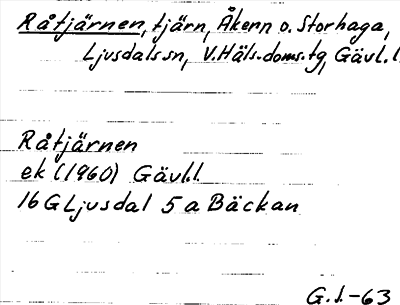 Råtjärnen, tjärn, Åkern o. Storhaga,
Ljusdals sn, V. Häls. doms. tg, Gävl. l.
Råtjärnen
ek (1960) Gävl.l.
16 G Ljusdal 5 a Bäckan
G.I.-63